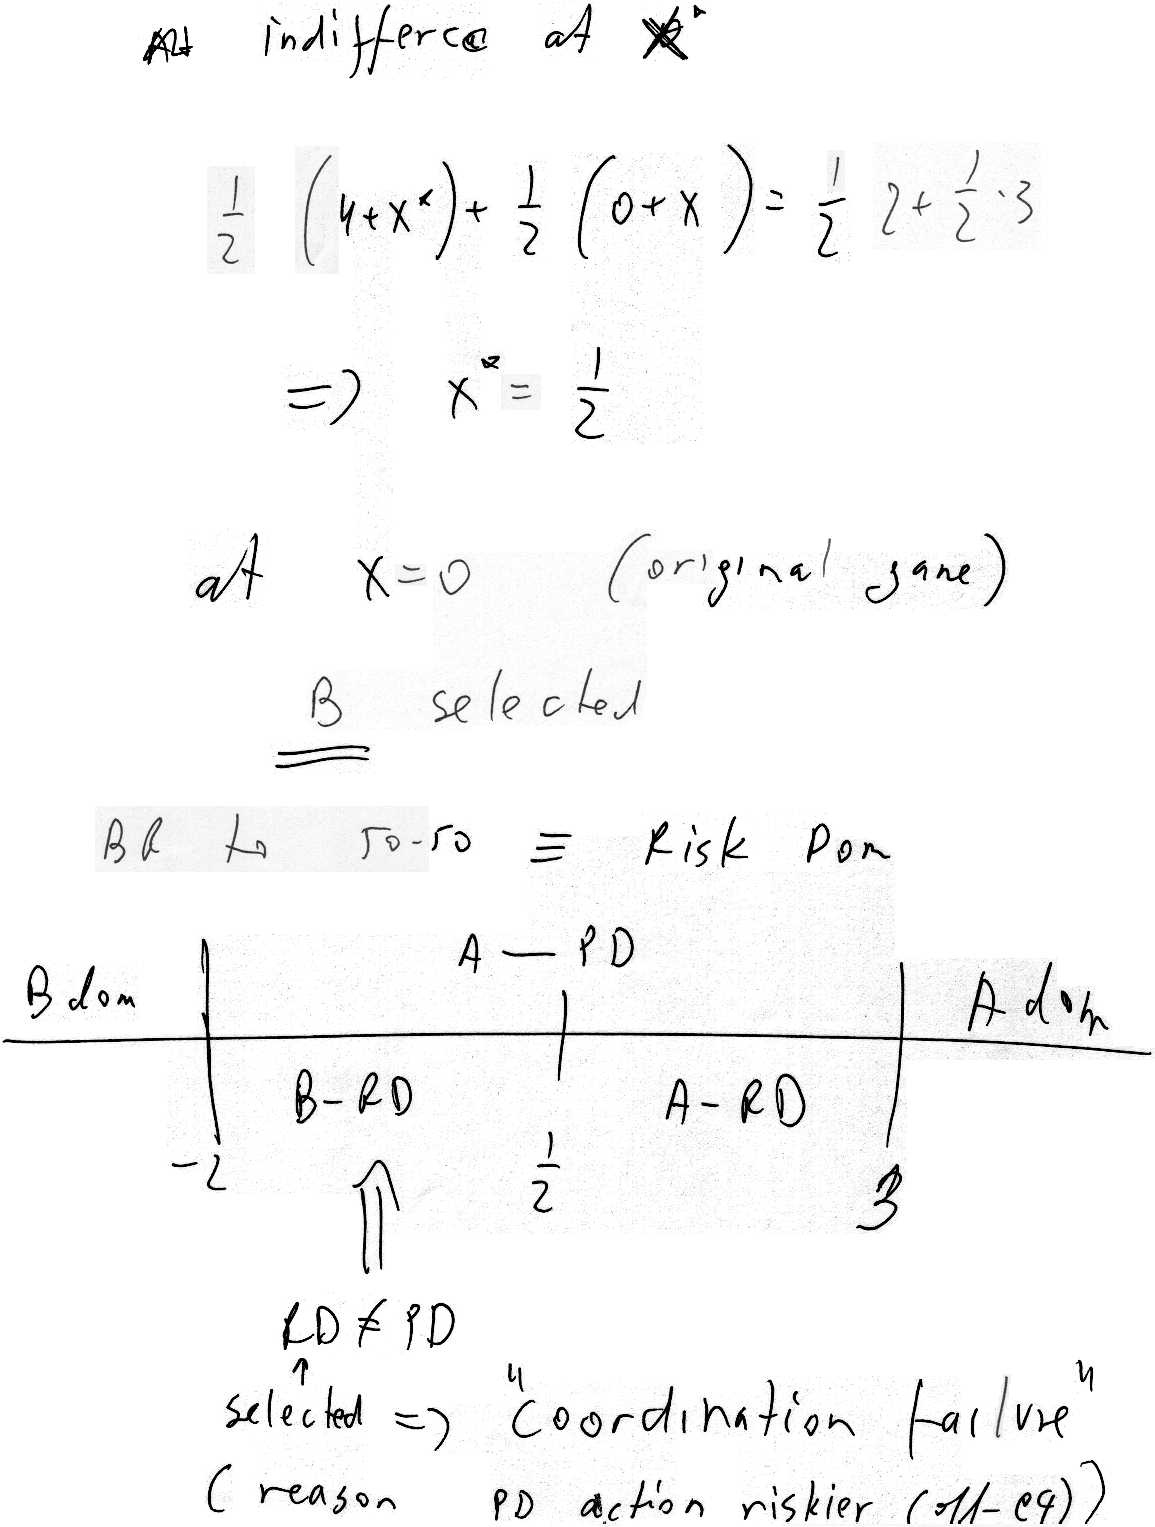 At indifferce at x*
1/2 (4+x*) + 1/2 (0+x) = 1/2 2 + 1/2 · 3
=> x* = 1/2
at x=0 (original game)
B selected
BR to 50-50 ≡ Risk Dom
A — PD
B dom A dom
B-RD A-RD
-2 1/2 3
RD ≠ PD
selected => "Coordination failure"
(reason PD action riskier (off-eq))